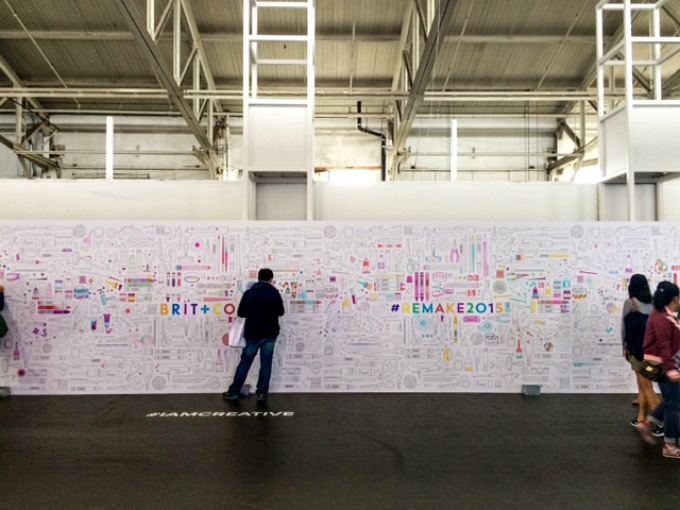 BRIT+CO
#REMAKE2015
#IAMCREATIVE